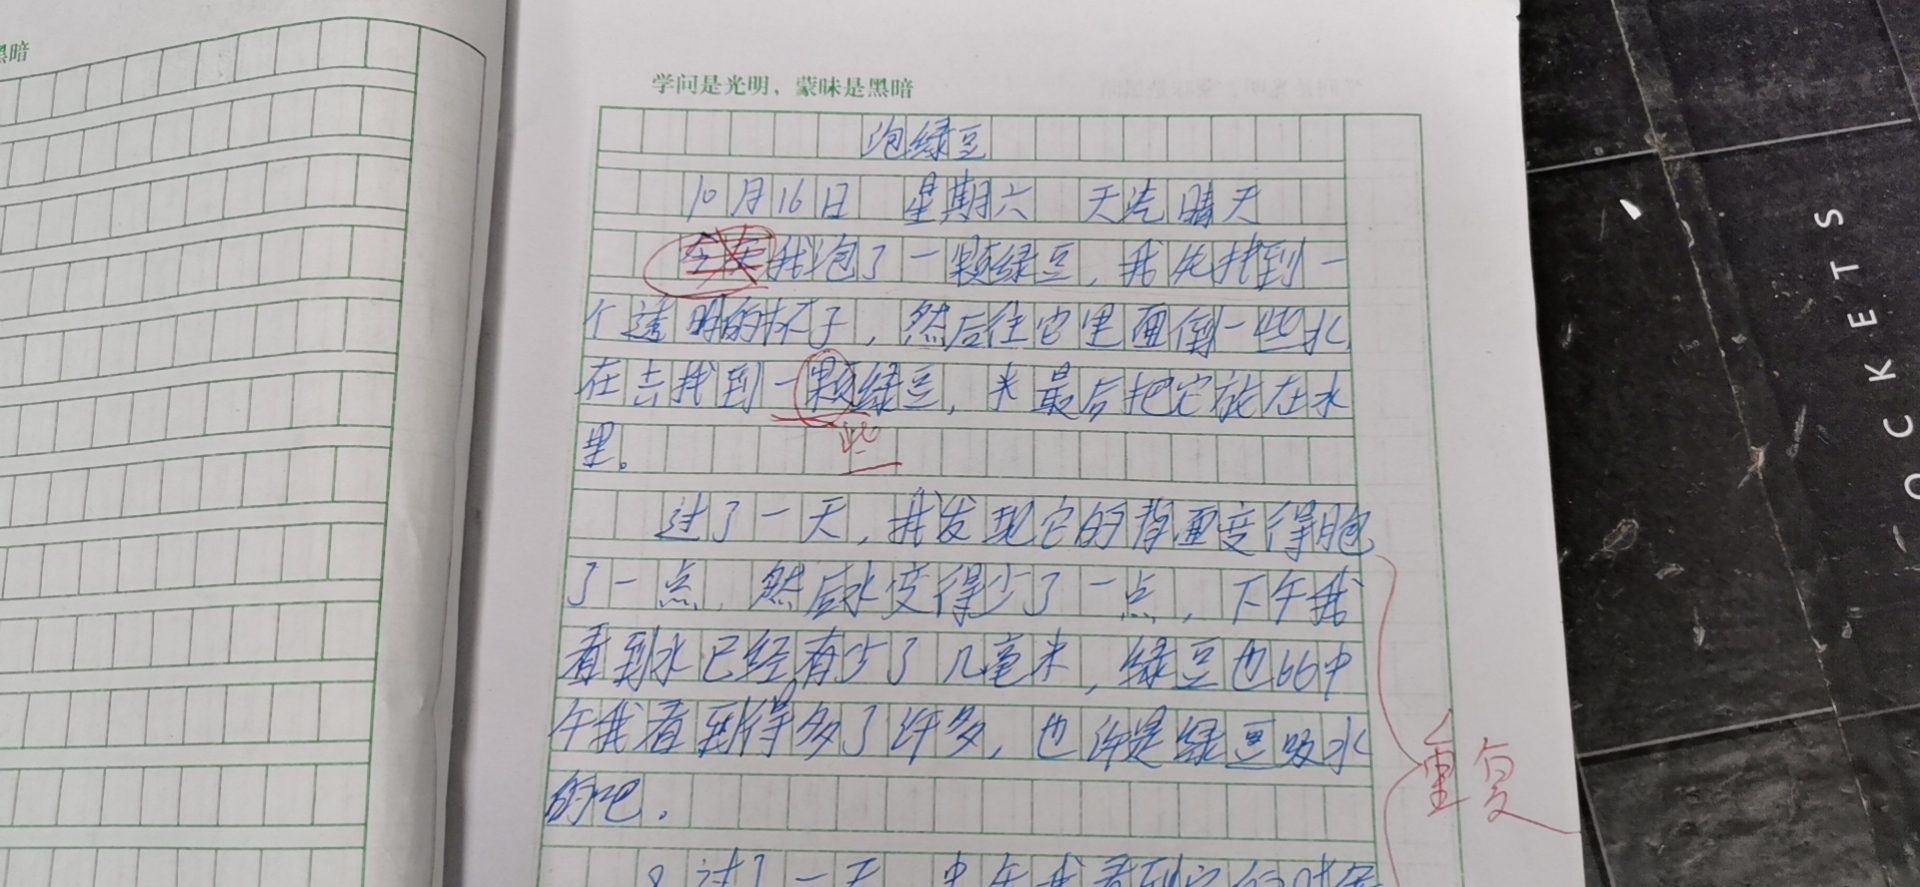 黑暗
学问是光明，蒙昧是黑暗
泡绿豆
10月16日 星期六 天汽晴天
今天我泡了一颗绿豆，我先找到一
个透明的杯子，然后往它里面倒一些水
在去找到一颗绿豆，最后把它放在水
里。
些
过了一天，我发现它的背面变得胞
了一点，然后水变得少了一点，下午我
看到水已经有少了几毫米，绿豆也比中
午我看到得多了许多，也许是绿豆吸水
的吧．
重复
过了一天，中午我看到它
OCKETS